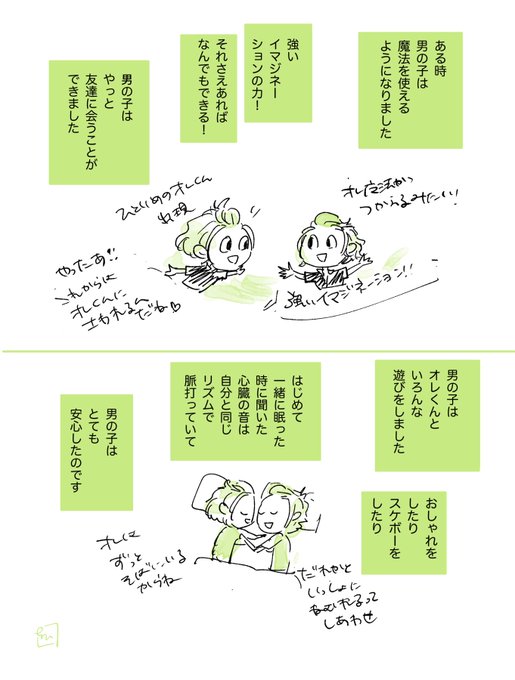 ある時
男の子は
魔法を使える
ようになりました
強い
イマジネー
ションの力！
それさえあれば
なんでもできる！
男の子は
やっと
友達に会うことが
できました
オレ魔法が
つかえるみたい！
強いイマジネーション!!
ひとりめのオレくん
出現
やったあ!!
これからは
オレくんに
だね♡
男の子は
オレくんと
いろんな
遊びをしました
おしゃれを
したり
スケボーを
したり
はじめて
一緒に眠った
時に聞いた
心臓の音は
自分と同じ
リズムで
脈打っていて
男の子は
とても
安心したのです
だれかと
いっしょに
ねむれるって
しあわせ
オレは
ずっと
そばにいる
からね